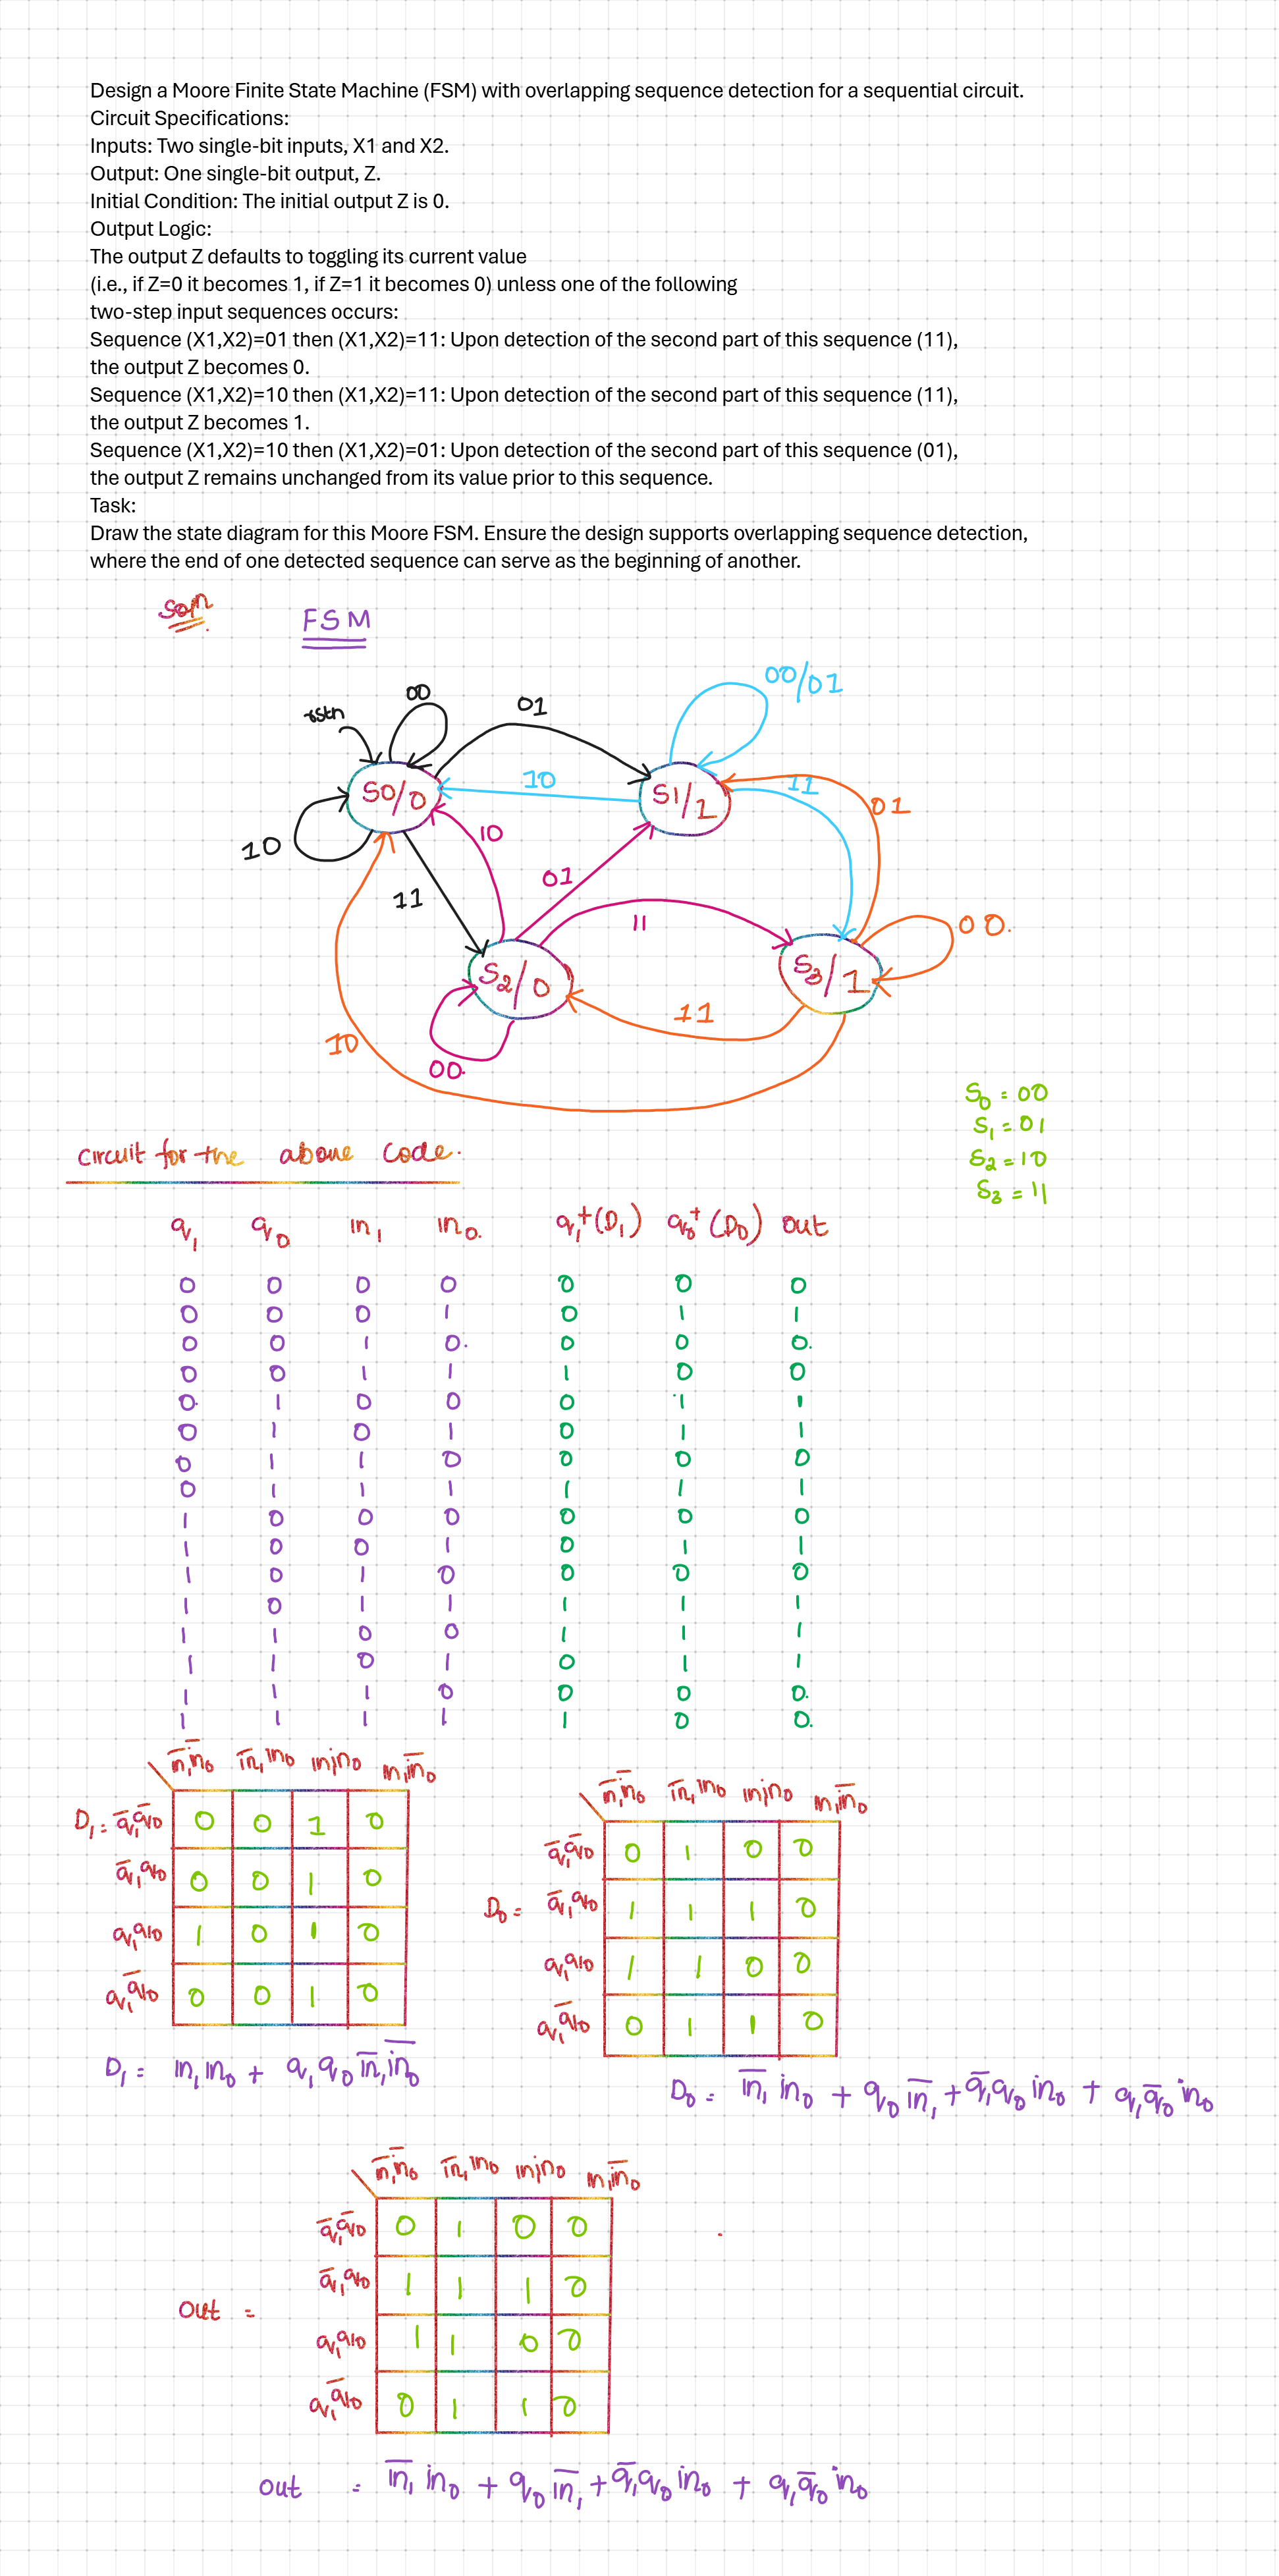 Design a Moore Finite State Machine (FSM) with overlapping sequence detection for a sequential circuit.
Circuit Specifications:
Inputs: Two single-bit inputs, X1 and X2.
Output: One single-bit output, Z.
Initial Condition: The initial output Z is 0.
Output Logic:
The output Z defaults to toggling its current value
(i.e., if Z=0 it becomes 1, if Z=1 it becomes 0) unless one of the following
two-step input sequences occurs:
Sequence (X1,X2)=01 then (X1,X2)=11: Upon detection of the second part of this sequence (11),
the output Z becomes 0.
Sequence (X1,X2)=10 then (X1,X2)=11: Upon detection of the second part of this sequence (11),
the output Z becomes 1.
Sequence (X1,X2)=10 then (X1,X2)=01: Upon detection of the second part of this sequence (01),
the output Z remains unchanged from its value prior to this sequence.
Task:
Draw the state diagram for this Moore FSM. Ensure the design supports overlapping sequence detection,
where the end of one detected sequence can serve as the beginning of another.
Soln
FSM
00/01
00
01
rstn
10
S0/0
S1/1
11
01
10
10
01
11
11
00.
S2/0
S3/1
11
10
00.
S0 = 00
S1 = 01
S2 = 10
S3 = 11
circuit for the above code.
q1 q0 in1 in0. q1+(D1) q0+(D0) out
0 0 0 0 0 0 0
0 0 0 1 0 1 1
0 0 1 0. 0 0 0.
0 0 1 1 1 0 0
0. 1 0 0 0 1 1
0 1 0 1 0 1 1
0 1 1 0 0 0 0
0 1 1 1 1 1 1
1 0 0 0 0 0 0
1 0 0 1 0 1 1
1 0 1 0 0 0 0
1 0 1 1 1 1 1
1 1 0 0 1 1 1
1 1 0 1 0 1 1
1 1 1 0 0 0 0.
1 1 1 1 1 0 0.
i̅n̅1i̅n̅0 i̅n̅1in0 in1in0 in1i̅n̅0
D1= q̅1q̅0 0 0 1 0
q̅1q0 0 0 1 0
q1q0 1 0 1 0
q1q̅0 0 0 1 0
D1 = in1in0 + q1q0i̅n̅1i̅n̅0
i̅n̅1i̅n̅0 i̅n̅1in0 in1in0 in1i̅n̅0
q̅1q̅0 0 1 0 0
D0 = q̅1q0 1 1 1 0
q1q0 1 1 0 0
q1q̅0 0 1 1 0
D0 = i̅n̅1in0 + q0i̅n̅1 + q̅1q0in0 + q1q̅0in0
i̅n̅1i̅n̅0 i̅n̅1in0 in1in0 in1i̅n̅0
q̅1q̅0 0 1 0 0
q̅1q0 1 1 1 0
out =
q1q0 1 1 0 0
q1q̅0 0 1 1 0
out = i̅n̅1in0 + q0i̅n̅1 + q̅1q0in0 + q1q̅0in0